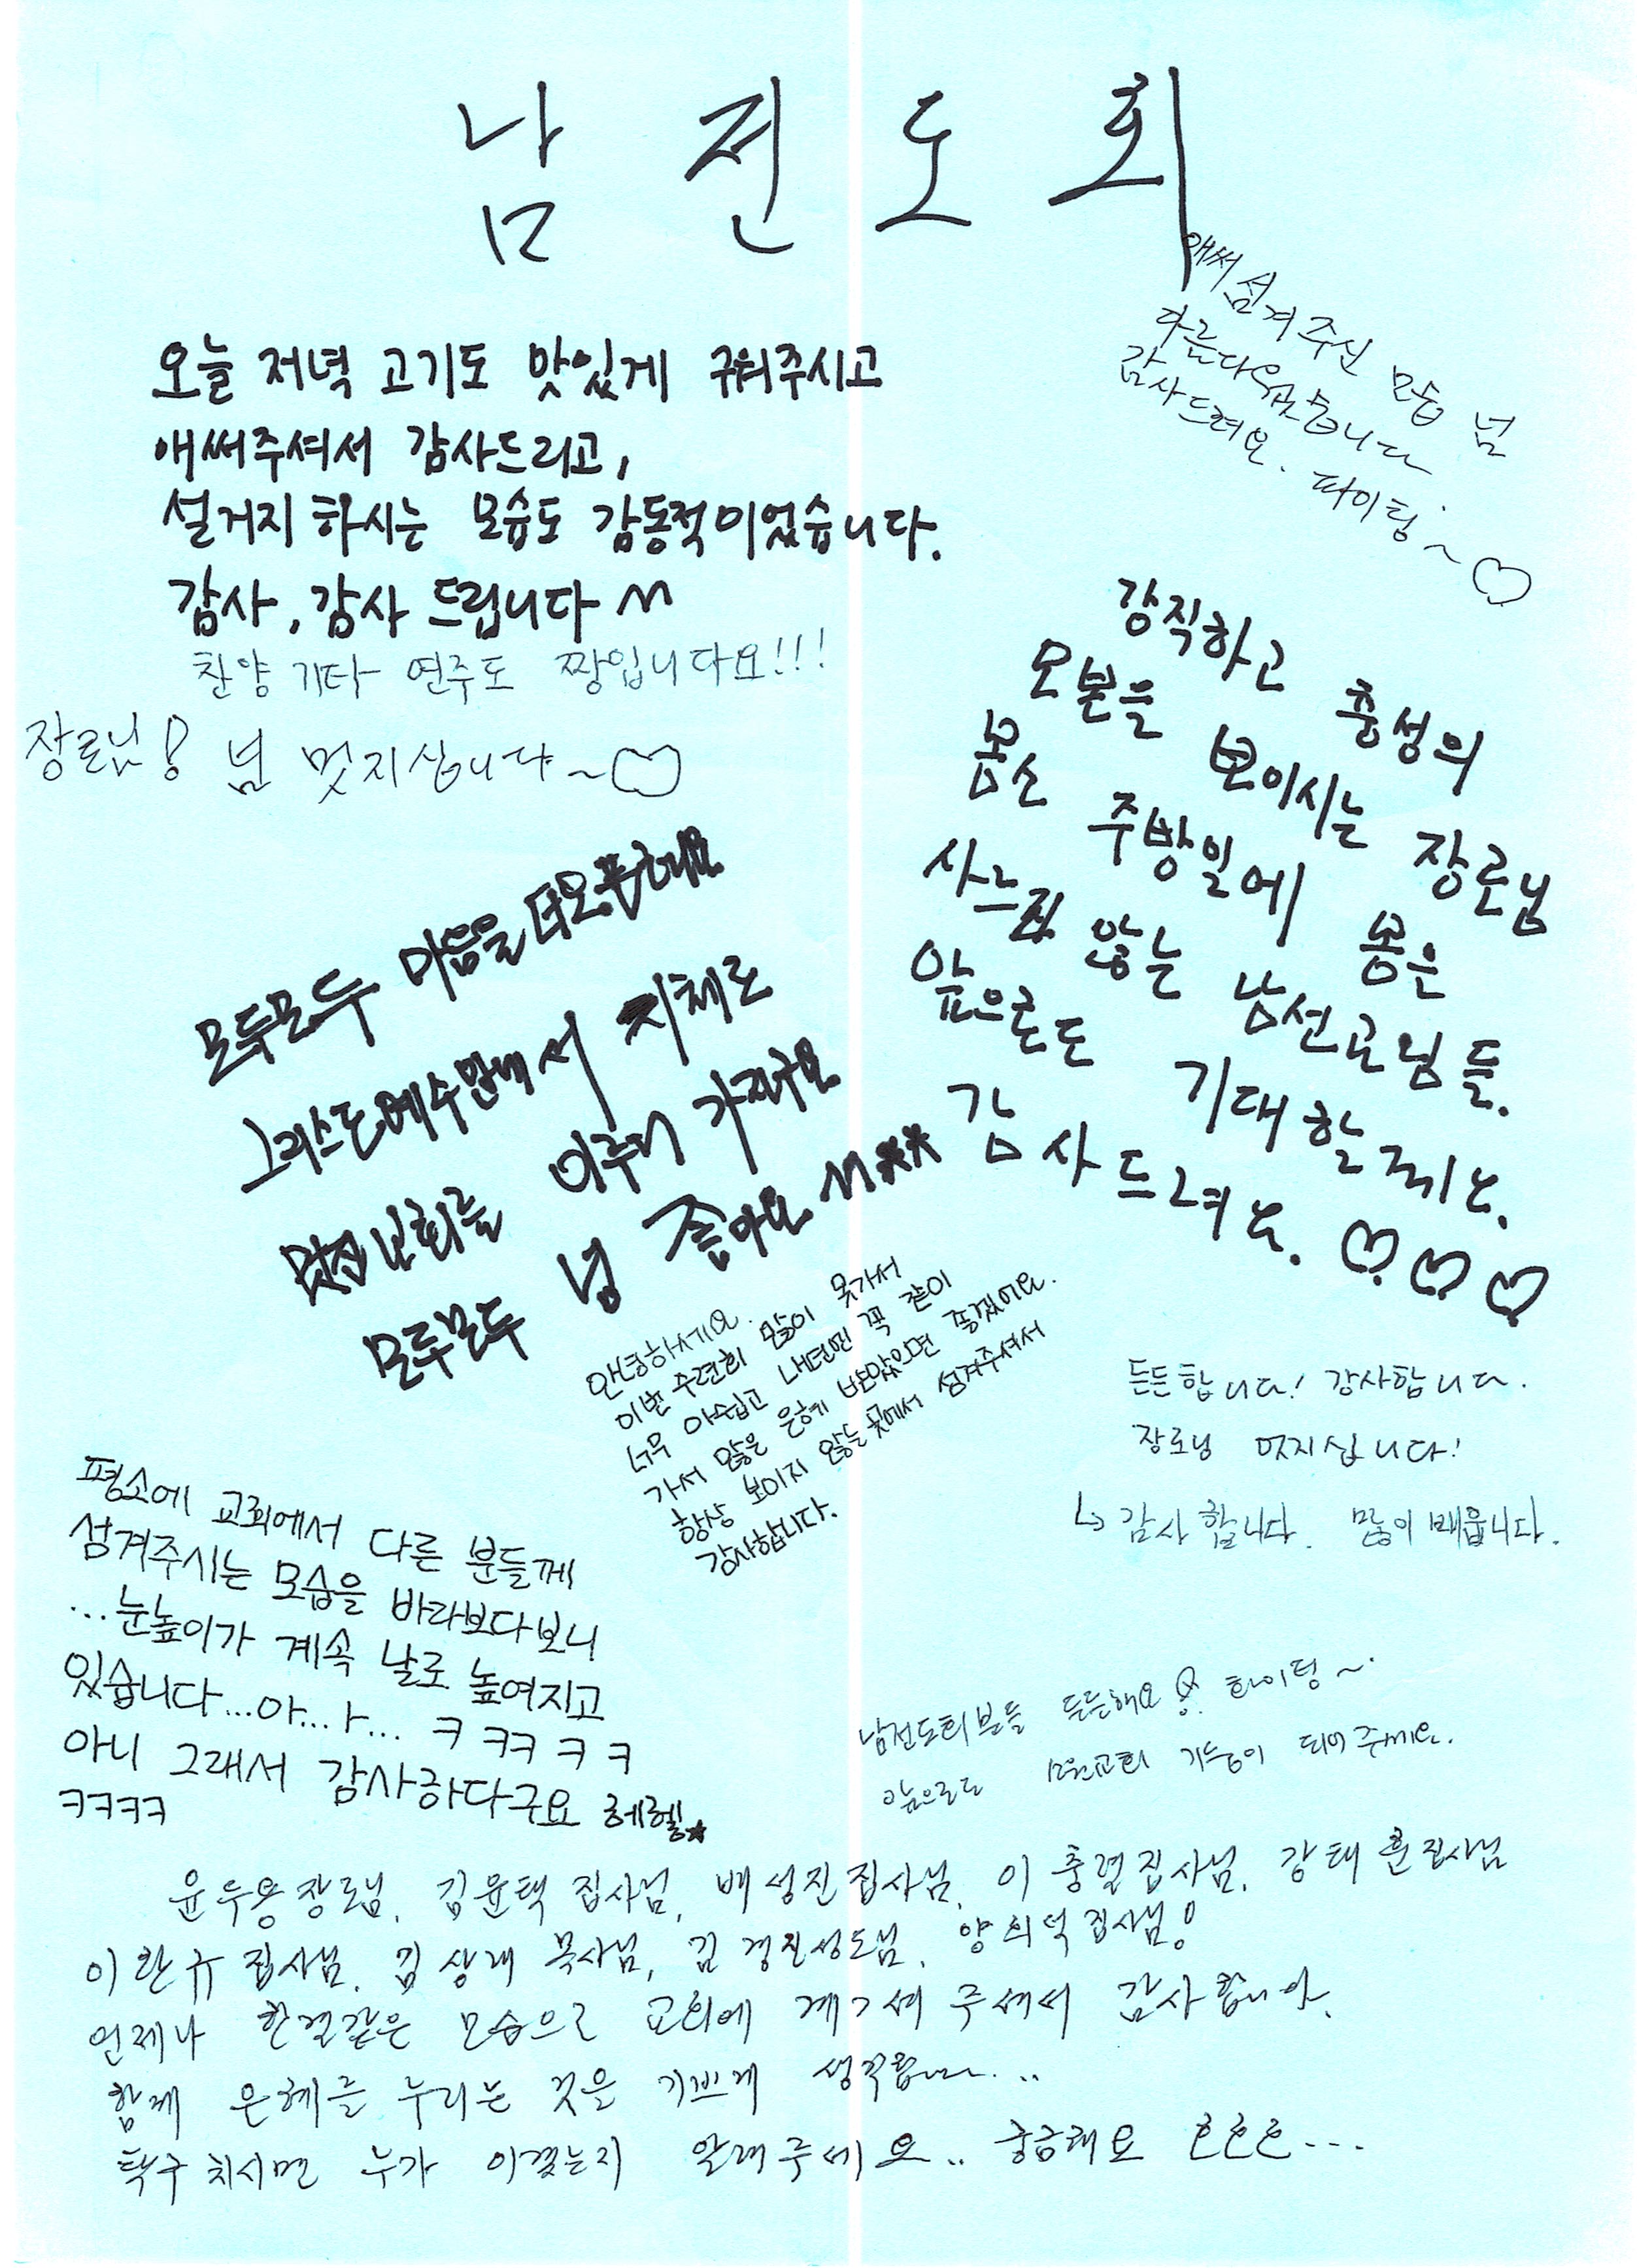 남전도회
애써 섬겨주신 모습 넘
아름다웠습니다.
감사드려요. 파이팅~♡
오늘 저녁 고기도 맛있게 구워주시고
애써주셔서 감사드리고,
설거지 하시는 모습도 감동적이었습니다.
감사, 감사 드립니다 ^^
찬양 기타 연주도 짱입니다요!!!
장로님! 넘 멋지십니다~♡
강직하고 충성의
모본을 보이시는 장로님
몸소 주방일에 몸은
사르지 않는 남선교님들.
앞으로도 기대할께요.
감사드려요. ♡♡♡
모두모두 마음을
그리스도예수안에서 지체로
멋진 교회를 이루어 가자구요
모두모두 넘 좋아요 ^^**
안녕하세요.
이번 수련회 많이 못가서
너무 아쉽고 내년엔 꼭 같이
가서 많은 은혜 받았으면 좋겠어요.
항상 보이지 않는 곳에서 섬겨주셔서
감사합니다.
든든합니다! 감사합니다.
장로님 멋지십니다!
↳ 감사합니다. 많이 배웁니다.
평소에 교회에서 다른 분들께
섬겨주시는 모습을 바라보다보니
...눈높이가 계속 날로 높여지고
있습니다...아...ㅏ... ㅋㅋㅋㅋㅋ
아니 그래서 감사하다구요 헤헿★
ㅋㅋㅋㅋ
남전도회분들 든든해요! 화이팅~
앞으로도 교회 기둥이 되어주세요.
윤두용장로님, 김윤택집사님, 배성진집사님, 이충렬집사님, 강태훈집사님
이환규집사님, 김상래목사님, 김경진성도님, 양희덕집사님!
언제나 한결같은 모습으로 교회에 계셔주셔서 감사합니다.
함께 은혜를 누리는 것을 기쁘게 생각합니다...
탁구 치시면 누가 이겼는지 알려주세요.. 궁금해요 흐흐흐...